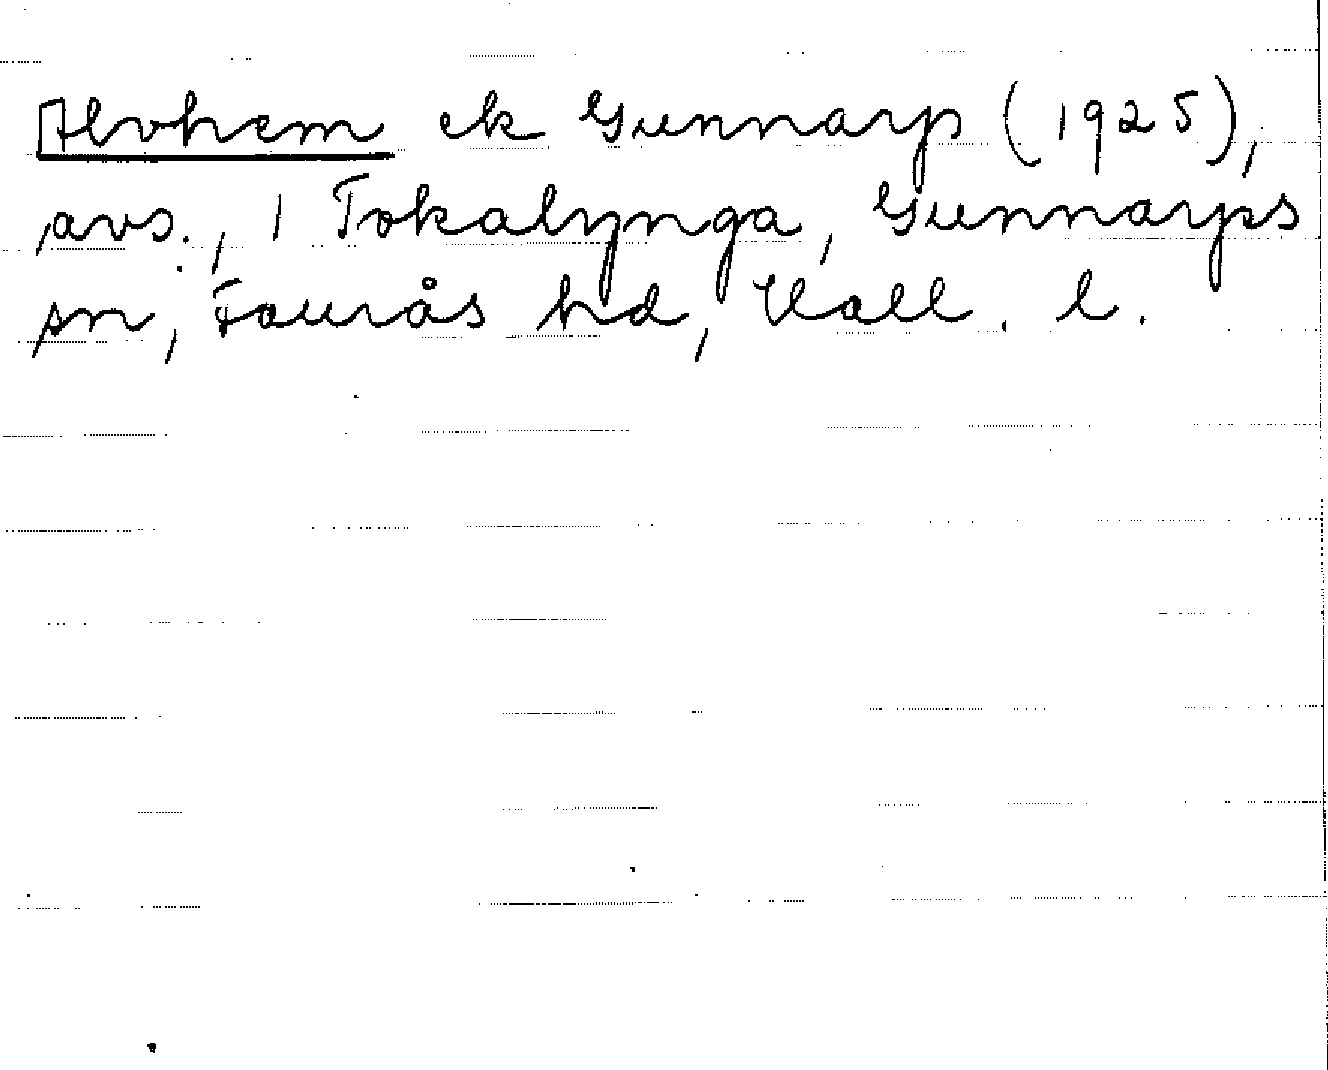 Alvhem ek Gunnarp (1925),
avs., 1 Tokalynga, Gunnarps
sn, Faurås hd, Hall. l.